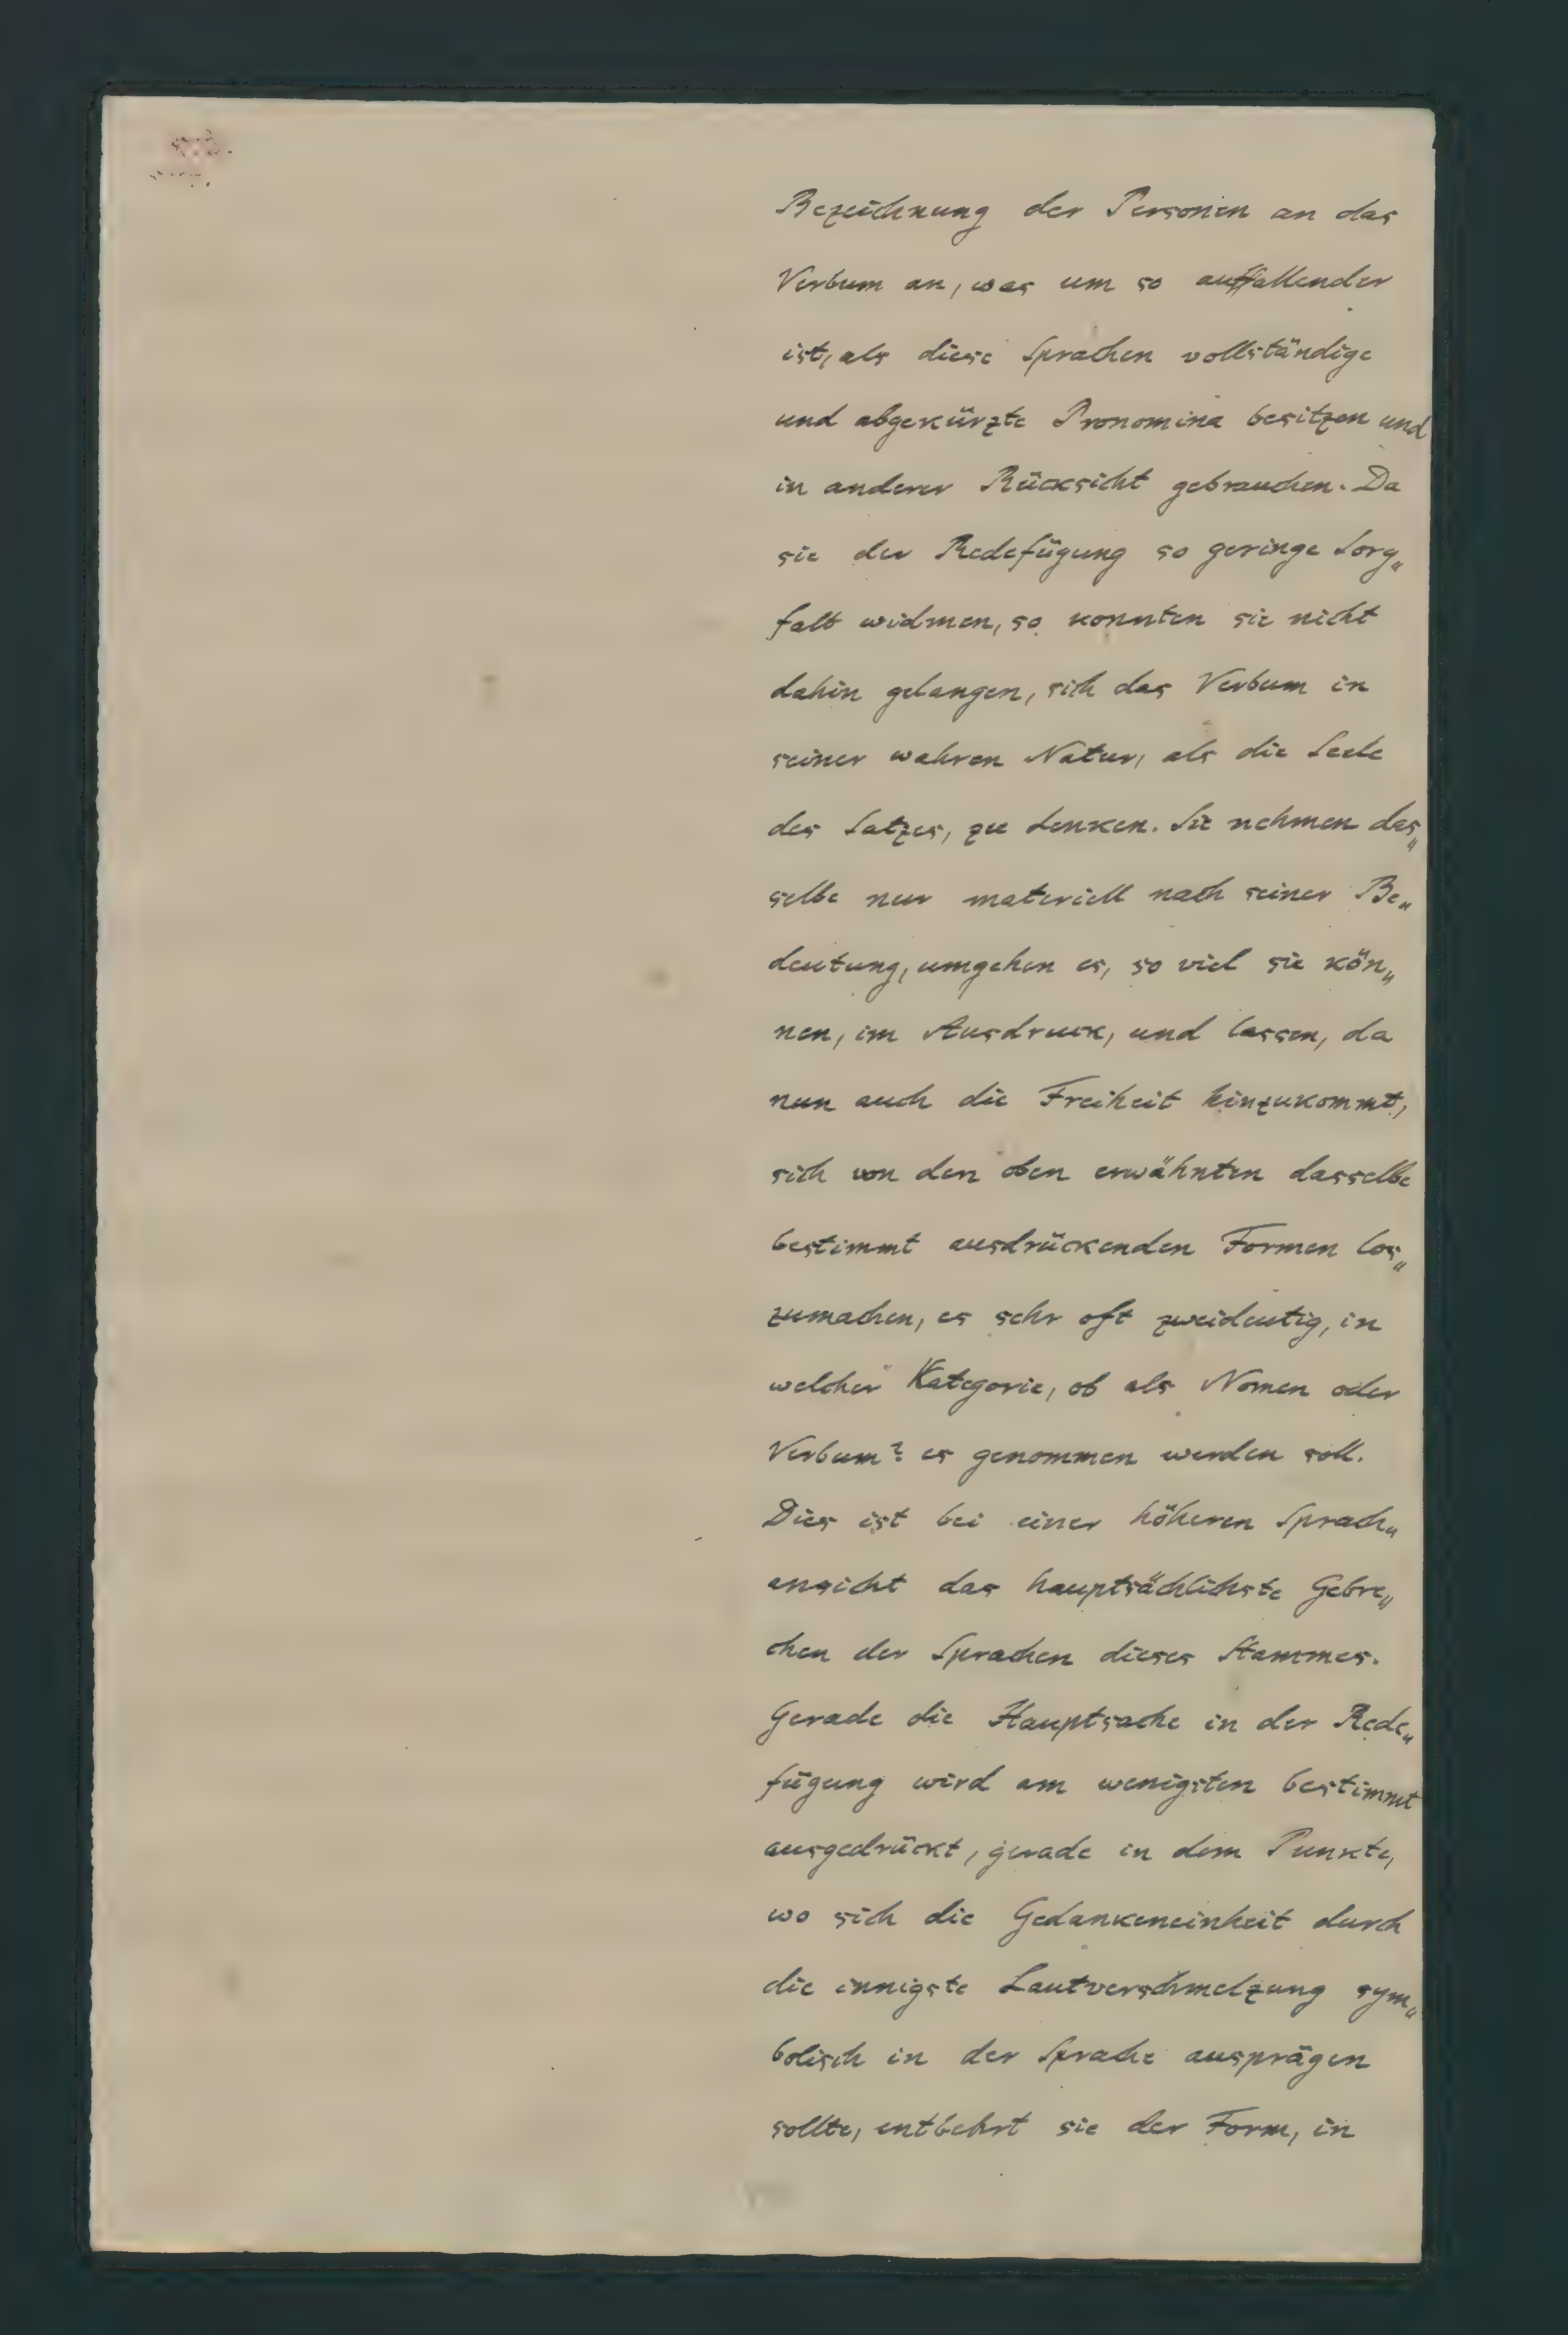 Bezeichnung der Personen an das
Verbum an, was um so auffallender
ist, als diese Sprachen vollständige
und abgekürzte Pronomina besitzen und
in anderer Rücksicht gebrauchen. Da
sie der Redefügung so geringe Sorg„
falt widmen, so konnten sie nicht
dahin gelangen, sich das Verbum in
seiner wahren Natur, als die Seele
des Satzes, zu denken. Sie nehmen das„
selbe nur materiell nach seiner Be„
deutung, umgehen es, so viel sie kön„
nen, im Ausdruck, und lassen, da
nun auch die Freiheit hinzukommt,
sich von den oben erwähnten dasselbe
bestimmt ausdrückenden Formen los„
zumachen, es sehr oft zweideutig, in
welcher Kategorie, ob als Nomen oder
Verbum? es genommen werden soll.
Dies ist bei einer höheren Sprach„
ansicht das hauptsächlichste Gebre„
chen der Sprachen dieses Stammes.
Gerade die Hauptsache in der Rede„
fügung wird am wenigsten bestimmt
ausgedrückt, gerade in dem Punkte,
wo sich die Gedankeneinheit durch
die innigste Lautverschmelzung sym„
bolisch in der Sprache ausprägen
sollte, entbehrt sie der Form, in